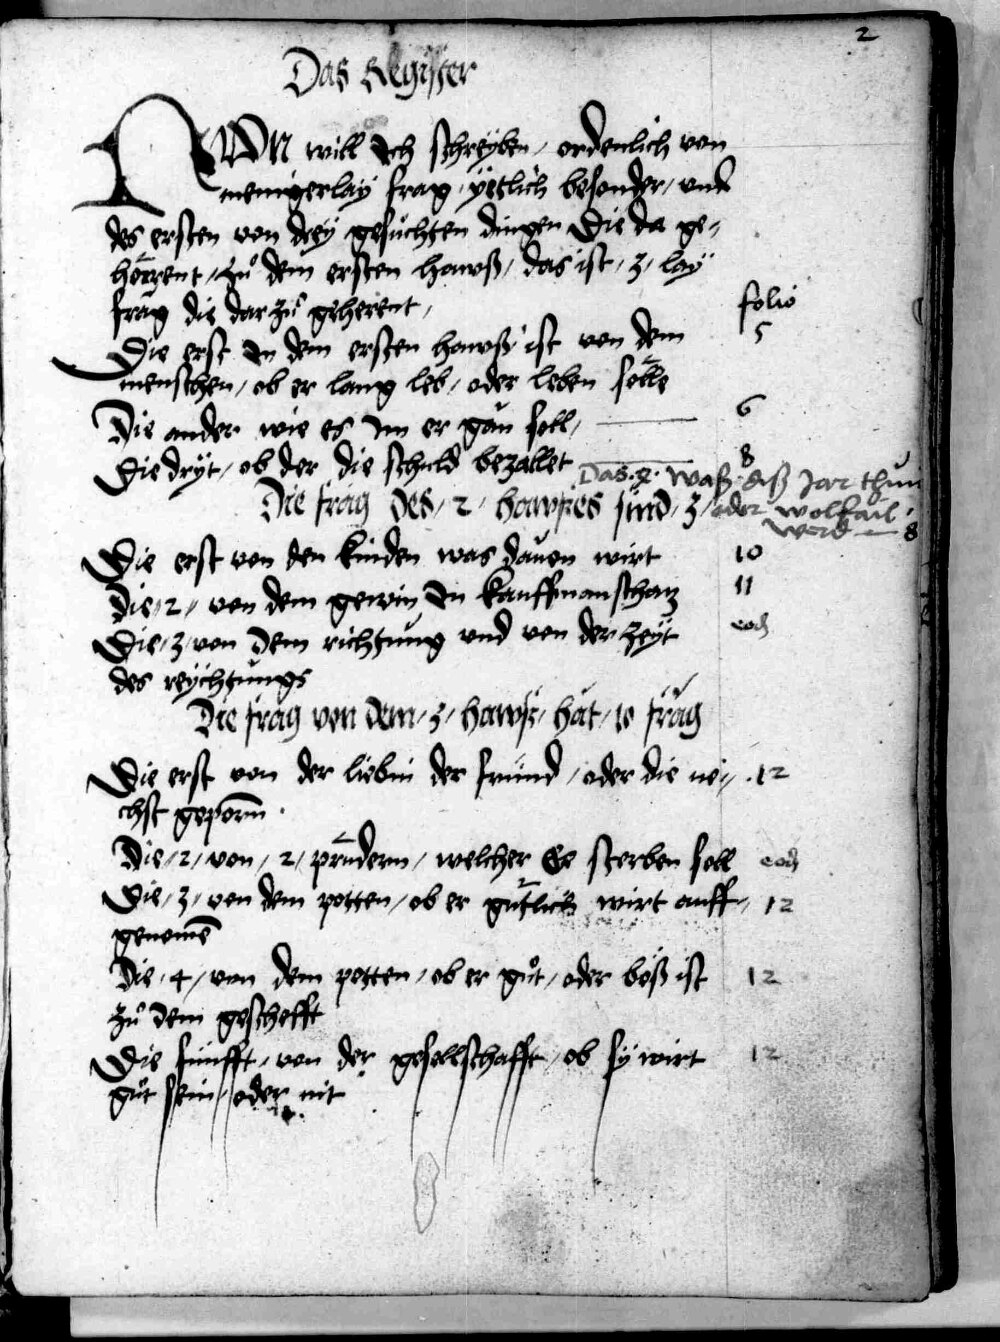 2
Das Register
NUN will Ich schreyben / ordenlich von
menigerlay frag / yetlich besonder / vnd
des ersten von drey gesuchten dingen Die da ge-
hörrent / zů dem ersten hawß / das ist / 3 / lay
frag die dar zů geherent /
folio
Die erst In dem ersten hawß ist von dem 5
menschen / ob er lang leb / oder leben sölle
Die ander wie es Im er gan soll / 6
Die dryt / ob der die schuld bezallet 8
Das .4. waß diß Jar thuu
Die frag des / 2 / hawses sind / 3 / oder wolfail
werd 8
Die erst von den kinden was dauon wirt 10
Die / 2 / von dem gewin In kauffmanschatz 11
Die / 3 / von dem richtung vnd von der zeyt eod
des reychtungs
Die frag von dem / 3 / hawß / hat / 10 frag
Die erst von der liebin der fründ / oder die nei- 12
chst geporn
Die / 2 / von / 2 / prüdern / welcher Ee sterben soll eod
Die / 3 / von dem potten / ob er gůtlich wirt auff- 12
genomē
Die / 4 / von dem potten / ob er gůt / oder böß ist 12
zů dem geschefft
Die fünfft / von der gesellschafft / ob sy wirt 12
gůt sein / oder nit